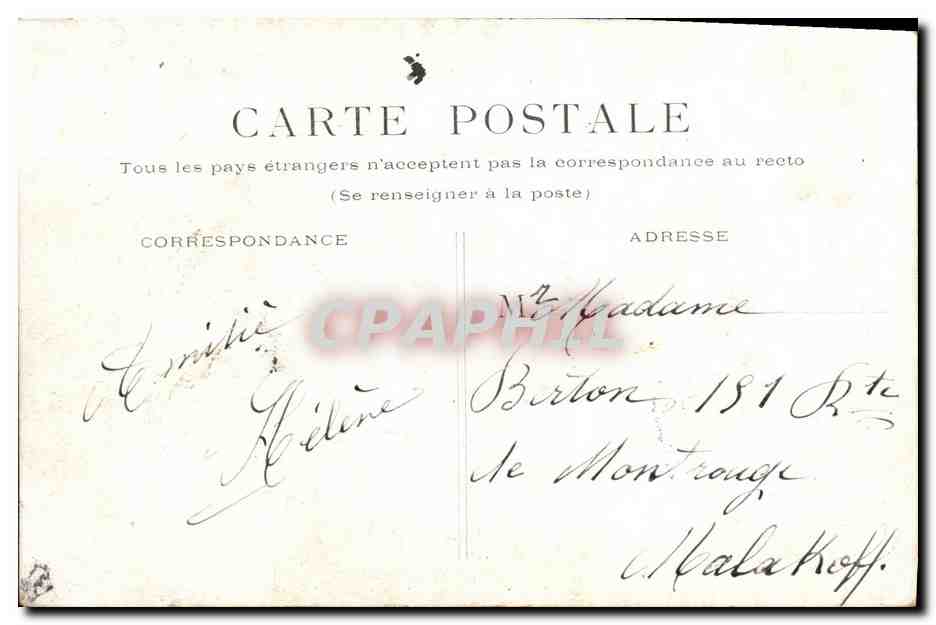 CARTE POSTALE
Tous les pays étrangers n'acceptent pas la correspondance au recto
(Se renseigner à la poste)
CORRESPONDANCE
ADRESSE
Emilie
Hélène
Mr Madame
Berton 191 Rte
de Montrouge
Malakoff.
CPAPHIL